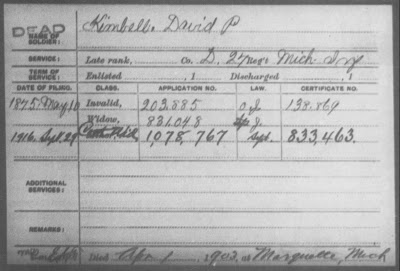 DEAD
Kimbell, David P
NAME OF SOLDIER:
SERVICE: Late rank, Co. D, 27 Reg't Mich Inf
TERM OF SERVICE: Enlisted , 1 Discharged , 1
DATE OF FILING. CLASS. APPLICATION NO. LAW. CERTIFICATE NO.
1875 May 10 Invalid, 203,885 138,869
Widow, 831,048
1916. Sept. 29 1,078,767 Sept. 833,463.
ADDITIONAL SERVICES:
REMARKS:
Died Apr 1, 1903, at Marquette, Mich